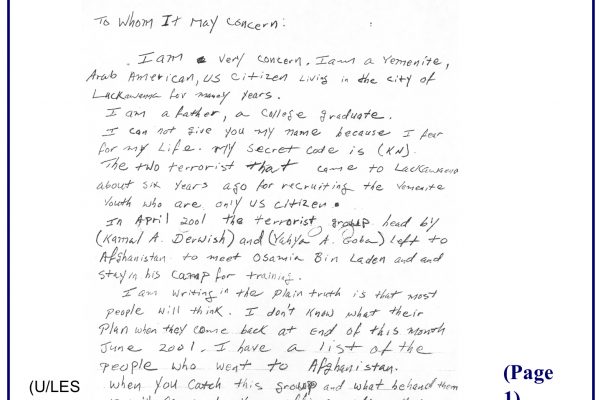 To Whom It May Concern:
I am a very concern. I am a Yemenite,
Arab American, US Citizen Living in the city of
Lackawanna for many years.
I am a father, a college graduate.
I can not give you my name because I fear
for my Life. My secret code is (KN).
The two terrorist that came to Lackawanna
about six years ago for recruiting the Yemenite
Youth who are only US citizen.
In April 2001 the terrorist group head by
(Kamal A. Derwish) and (Yahya A. Goba) Left to
Afghanistan to meet Osamia Bin Laden and and
stay in his camp for training.
I am writing in the plain truth is that most
people will think. I don't know what their
Plan when they come back at end of this month
June 2001. I have a list of the
people who went to Afghanistan.
When you catch this group and what behand them
(U/LES
(Page
1)